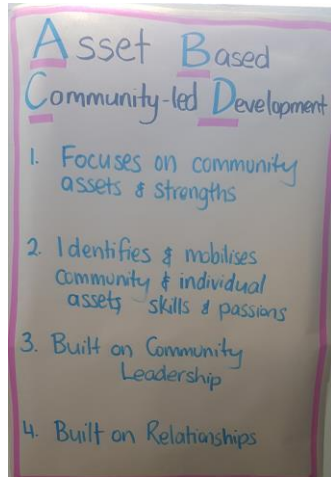 Asset Based
Community-led Development
1. Focuses on community
assets & strengths
2. Identifies & mobilises
community & individual
assets skills & passions
3. Built on Community
Leadership
4. Built on Relationships